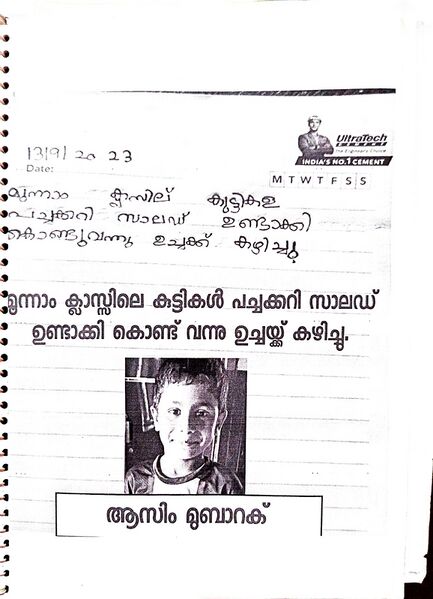 UltraTech
CEMENT
The Engineer's Choice
INDIA'S NO.1 CEMENT
13/9/2023
Date:
M T W T F S S
മുന്നാം ക്ലസില് കുട്ടികള
പച്ചക്കറി സാലഡ് ഉണ്ടാക്കി
കൊണ്ടുവന്നു ഉച്ചക്ക് കഴിച്ചു
മൂന്നാം ക്ലാസ്സിലെ കുട്ടികൾ പച്ചക്കറി സാലഡ്
ഉണ്ടാക്കി കൊണ്ട് വന്നു ഉച്ചയ്ക്ക് കഴിച്ചു.
ആസിം മുബാറക്